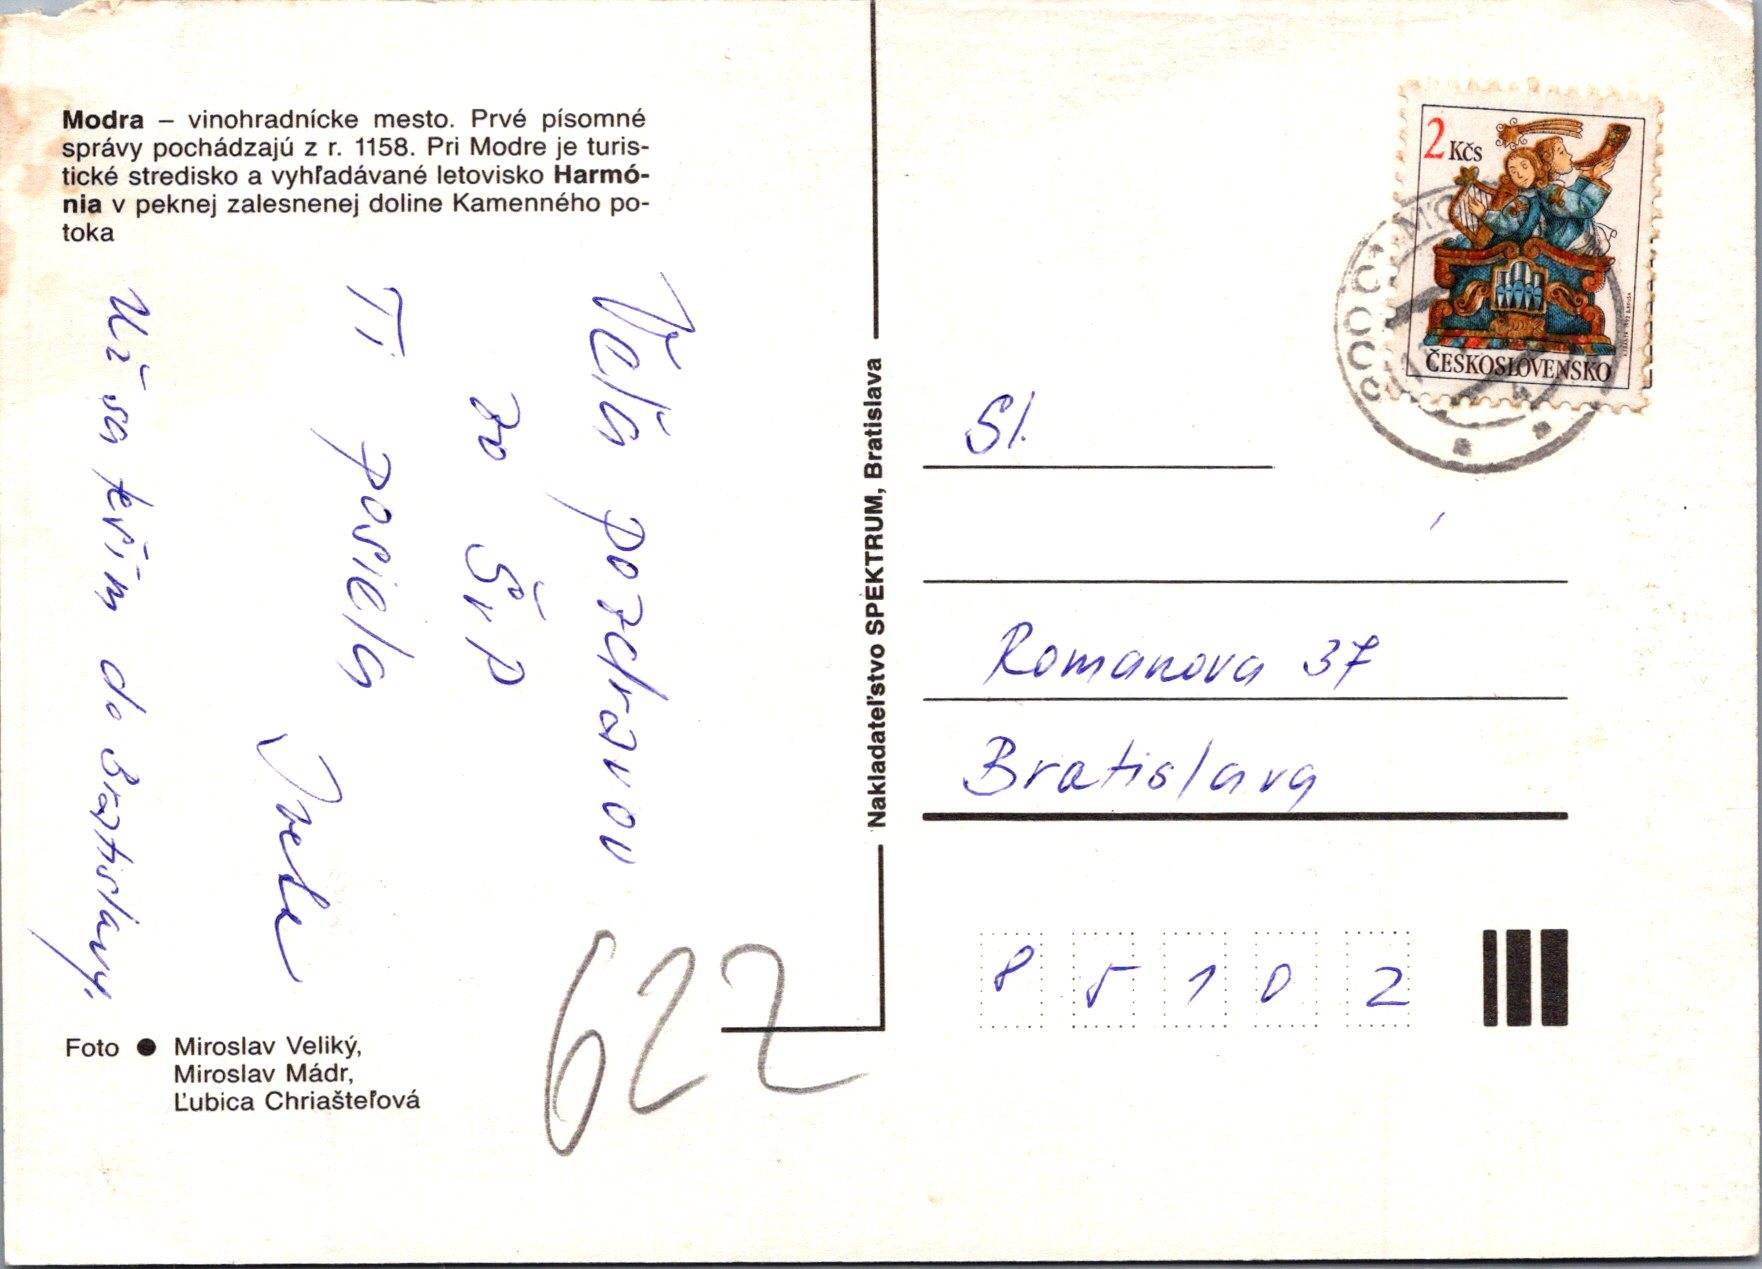 Modra – vinohradnícke mesto. Prvé písomné
správy pochádzajú z r. 1158. Pri Modre je turis-
tické stredisko a vyhľadávané letovisko Harmó-
nia v peknej zalesnenej doline Kamenného po-
toka
Veľa pozdravov
zo ŠvP
Ti posiela
Už sa teším do Bratislavy.
Foto ● Miroslav Veliký,
Miroslav Mádr,
Ľubica Chriašteľová
622
Nakladateľstvo SPEKTRUM, Bratislava
2 Kčs
ČESKOSLOVENSKO
Sl.
Romanova 37
Bratislava
85102